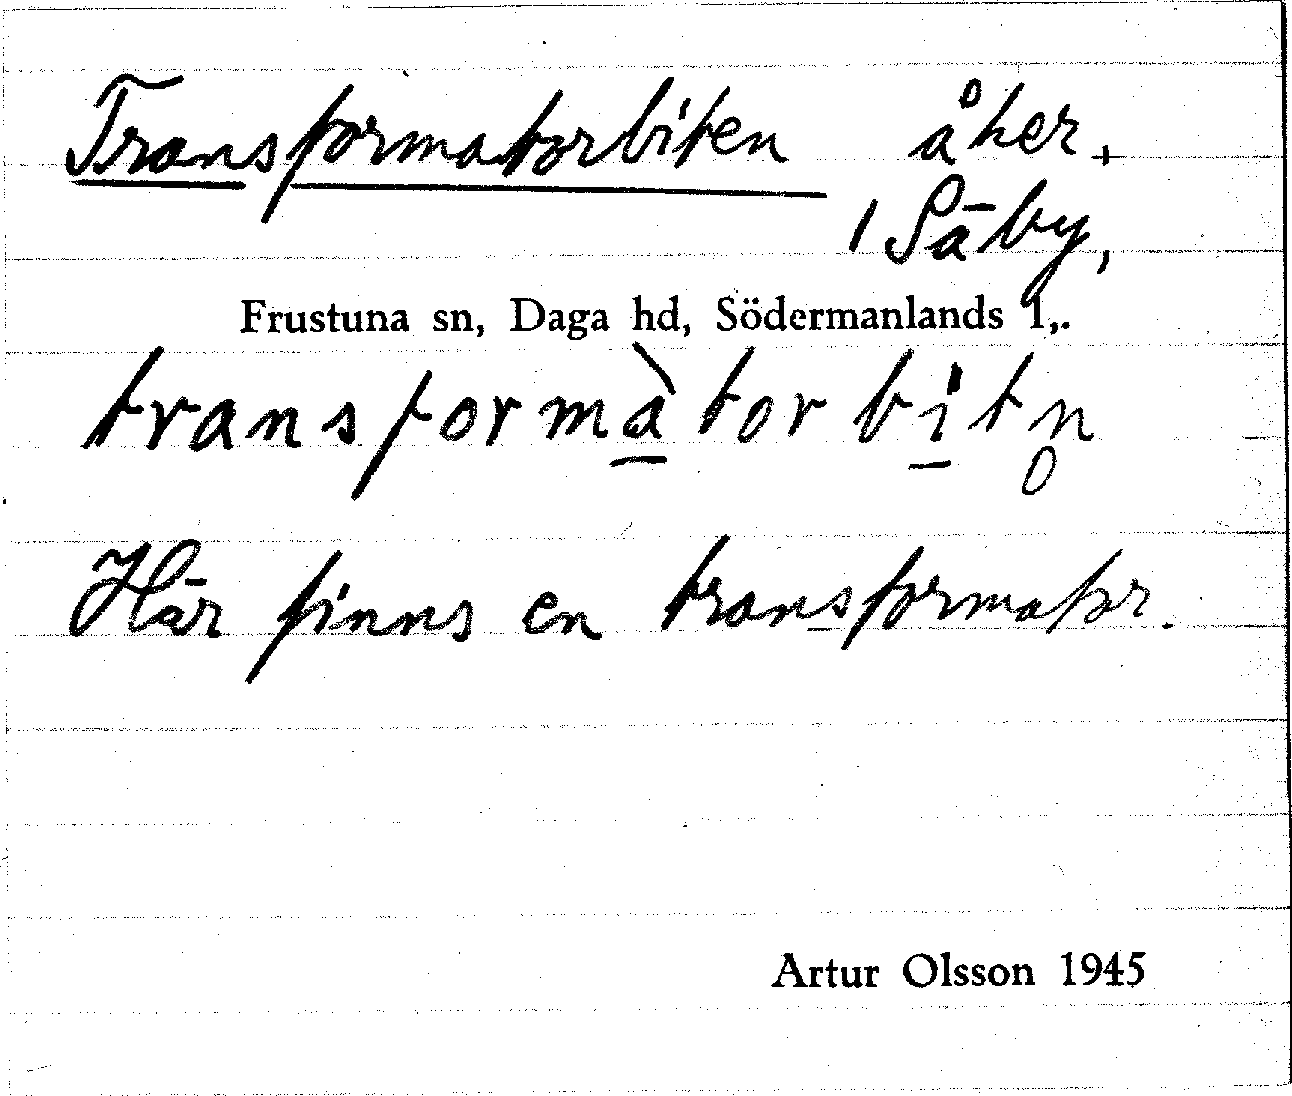 Transformatorbiten åker,
1 Säby,
Frustuna sn, Daga hd, Södermanlands l,.
transformàtorbitn̥
Här finns en transformator.
Artur Olsson 1945